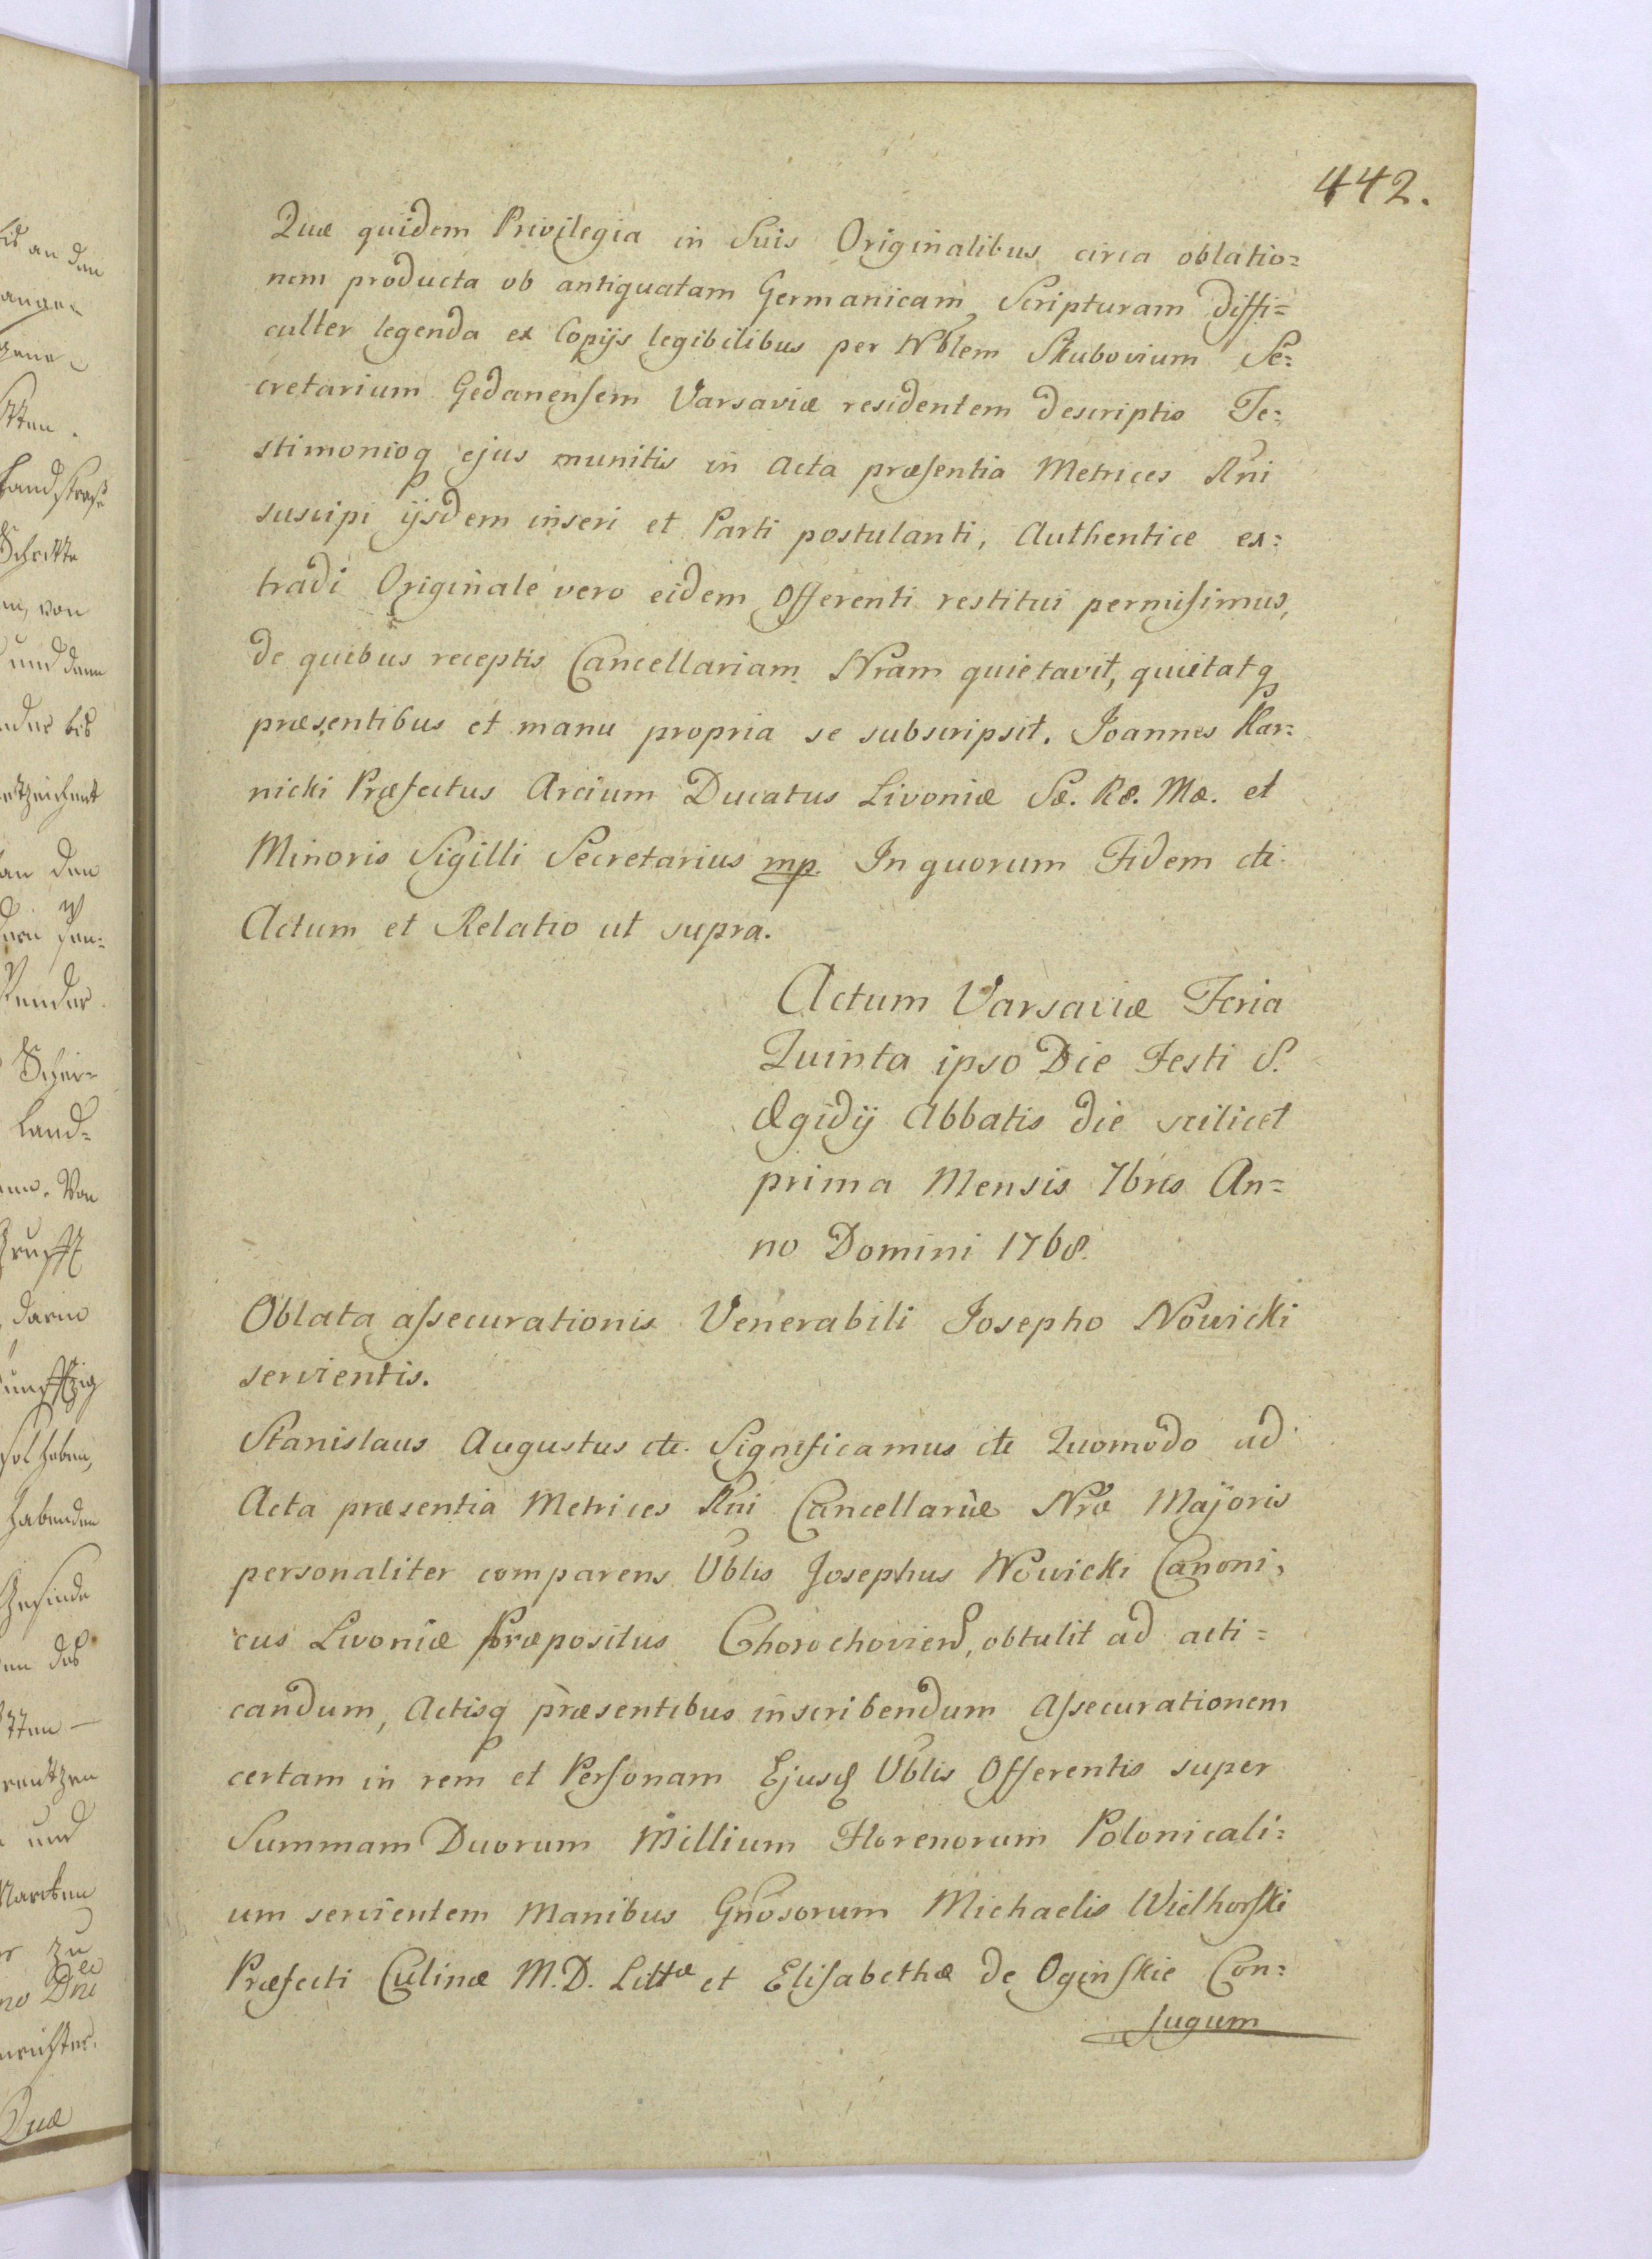 442.
Quæ quidem Privilegia in Suis Originalibus circa oblatio=
nem producta ob antiquatam Germanicam Scripturam diffi=
culter legenda ex Copijs legibilibus per Nblem Skubovium Se=
cretarium Gedanensem Varsaviæ residentem descriptis Te=
stimonioq ejus munitis in Acta præsentia Metrices Rni
suscipi ijsdem inseri et Parti postulanti, Authentice ex=
tradi Originale vero eidem Offerenti restitui permisimus,
de quibus receptis Cancellariam Nram quietavit, quietatq
præsentibus et manu propria se subscripsit. Joannes Kar=
nicki Præfectus Arcium Ducatus Livoniæ Sæ. Ræ. Mæ. et
Minoris Sigilli Secretarius mp. In quorum Fidem etc
Actum et Relatio ut supra.
Actum Varsaviæ Feria
Quinta ipso Die Festi S.
Ægidij Abbatis die scilicet
prima Mensis 7bris An=
no Domini 1768.
Oblata assecurationis Venerabili Josepho Nowicki
servientis.
Stanislaus Augustus etc. Significamus etc Quomodo ad
Acta præsentia Metrices Rni Cancellariæ Nræ Majoris
personaliter comparens Vblis Josephus Nowicki Canoni=
cus Livoniæ Præpositus Chorochoviens, obtulit ad acti=
candum, Actisq præsentibus inscribendum Assecurationem
certam in rem et Personam Ejusd Vblis Offerentis super
Summam Duorum Millium Florenorum Polonicali=
um servientem Manibus Gnosorum Michaelis Wielhorski
Præfecti Culinæ M. D. Littæ et Elisabethæ de Oginskie Con=
jugum